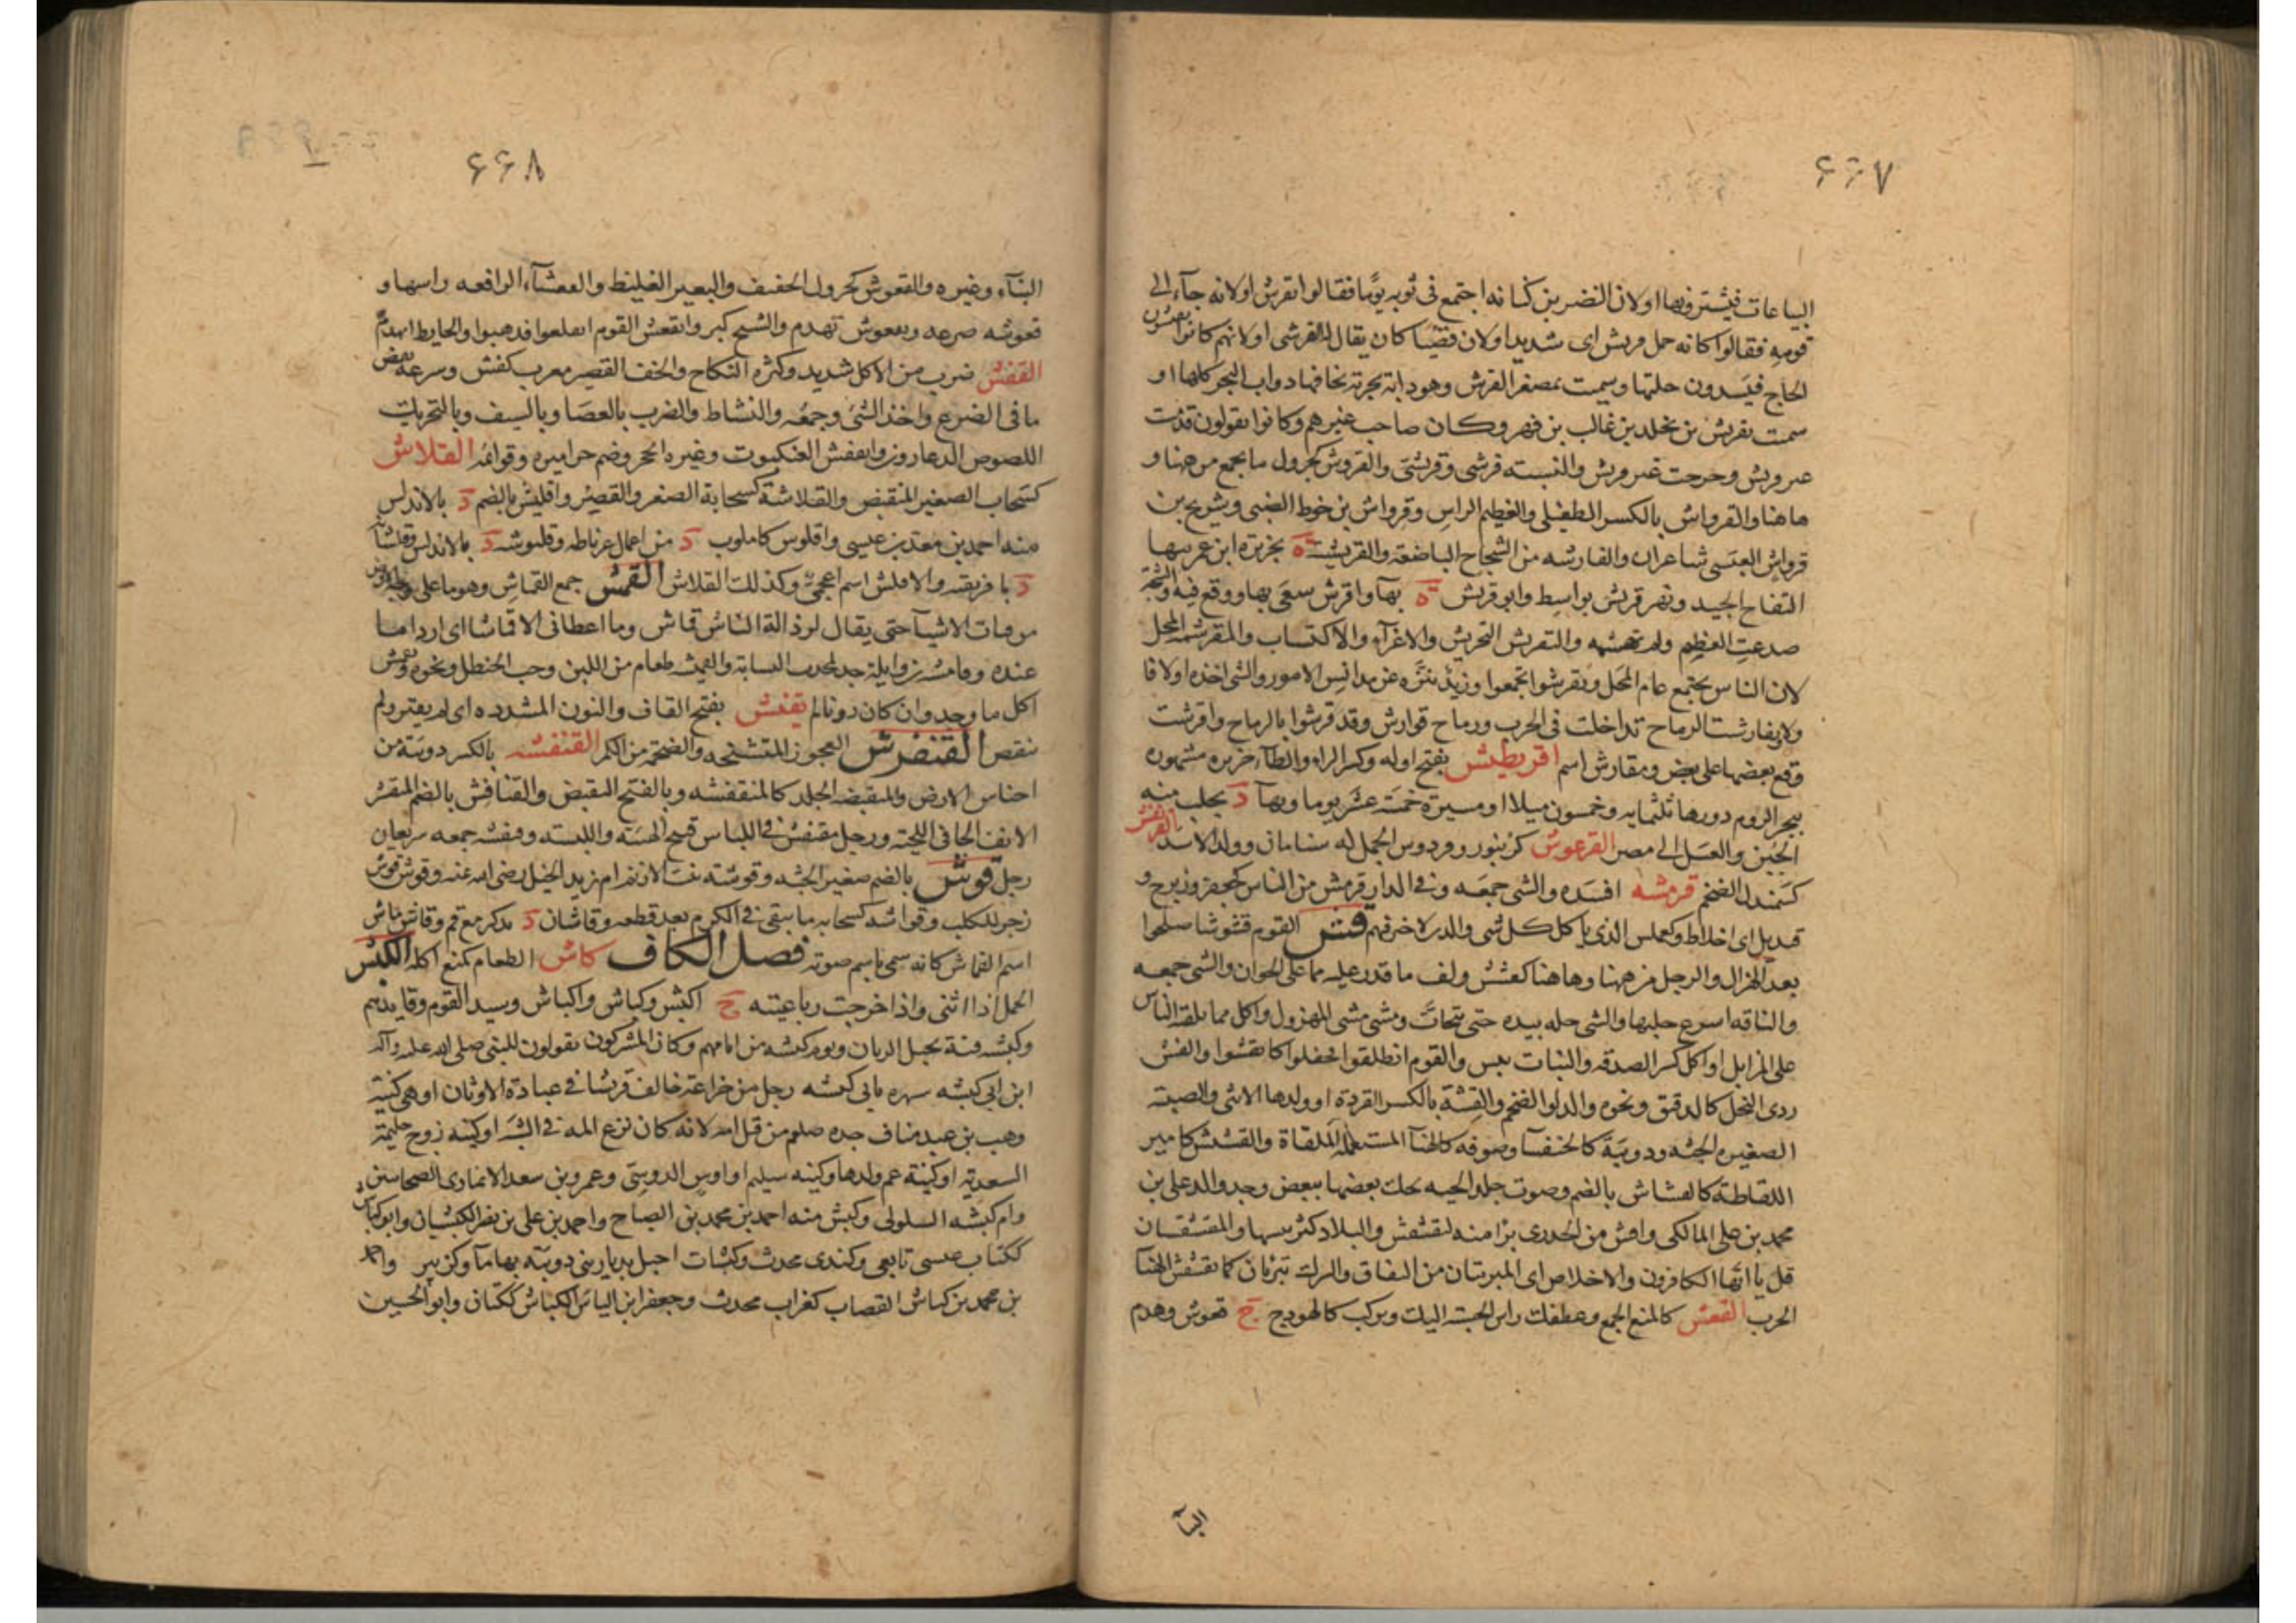 ۶۶۷
البياعات فيشترونها اولان النضر بن كنانه اجتمع فى ثوبه يوما فقالوا تقرش اولانه جآء الى
قومه فقالوا كانه جمل قريش اى شديد اولان قصيا كان يقال له القرشى اولانهم كانوا يفتشون
الحاج فيسدون خلتها وسميت بمصغر القرش وهو دابة بحرية تخافها دواب البحر كلها او
سمت بقريش بن مخلد بن غالب بن فهر وكان صاحب غيرهم وكانوا يقولون قدمت
عير قريش وخرجت عير قريش والنسبته قرشى وقريشى والقروش كجرول ما يجمع من ههنا و
هاهنا والقرواش بالكسر الطفيلى والعظيم الراس وقرواش بن حوط الضبى وشريح بن
قرواش العبسى شاعران والقارشه من الشجاج الباضعة والقريشية ة بجزيرة ابن عمر منها
التفاح الجيد ونهر قريش بواسط وابو قريش ة بهآ واقرش سعى بها ووقع فيه والشجة
صدعت العظم ولم تهشمه والتقريش التحريش والاغرآء والاكتساب والمقرشة المحل
لان الناس يجتمع عام المحل وتقرشوا تجمعوا وزيد تنزه عن مدانس الامور والشى اخذه اولا فا
ولا وتقارشت الرماح تداخلت فى الحرب ورماح قوارش وقد قرشوا بالرماح واقرشت
وقع بعضها على بعض ومقارش اسم اقريطش بفتح اوله وكسر الراء والطآء جزيره مشهوره
ببحر الروم دورها ثلثمايه وخمسون ميلا او مسيرة خمسة عشر يوما وبهآ د يجلب منه
الجبن والعسل الى مصر القرعوش كزنبور وفردوس الجمل له سنامان وولد الاسد القرنفش
كسمندل الضخم قرمشه افسده والشى جمعه وفى الدار قرمش من الناس كجعفر وزبرج و
قنديل اى اخلاط وكعملس الذى ياكل كل شى والذى لا خير فيهم قش القوم قشوشا صلحوا
بعد الهزال والرجل من ههنا وهاهنا كقشش ولف ما قدر عليه مما على الخوان والشى جمعه
والناقه اسرع حلبها والشى حله بيده حتى يتحات ومشى مشى المهزول واكل مما يلقه الناس
على المزابل او اكل كسر الصدقه والنبات يبس والقوم انطلقوا فجفلوا كانقشوا والقش
ردى النخل كالدقق ونحوه والدلو الضخم والقشة بالكسر القردة او ولدها الانثى والصبية
الصغيره الجثه ودويبة كالخنفسآ وصوفه كالهنآ المستعمله الملقاة والقشيش كامير
اللقاطة كالقشاش بالضم وصوت جلد الحيه تحك بعضها ببعض وجد والد على بن
محمد بن على المالكى واقش من الجدرى برا منه كتقشقش والبلاد كثر يبسها والمقشقشتان
قل يا ايها الكافرون والاخلاص اى المبرئتان من النفاق والشرك تبرئان كما يقشقش الهنآ
الجرب القعش كالمنع الجمع وعطفك راس الخشبة اليك ومركب كالهودج ج قعوش وهدم
البنآء
۶۶۸
البنآء وغيره والقعوش كجرول الخفيف والبعير الغليظ والقعشآء الرافعه راسها و
قعوشه صرعه وتقعوش تهدم والشيخ كبر وانقعش القوم انقلعوا فذهبوا والحايط انهدم
القفش ضرب من الاكل شديد وكثره النكاح والخف القصير معرب كفش وسرعه نفض
ما فى الضرع واخذ الشى وجمعه والنشاط والضرب بالعصا وبالسيف وبالتحريك
اللصوص الدعارون وانقفش العنكبوت وغيره انجحر وضم جراميزه وقوائمه القلاش
كسحاب الصغير المنقبض والقلاشة كسحابة الصغر والقصر واقليش بالضم د بالاندلس
منه احمد بن معد بن عيسى واقلوش كاملوب د من اعمال غرناطه وقليوشه د بالاندلس وقلشانه
د بافريقيه والاقلش اسم اعجمى وكذلك القلاش القمش جمع القماش وهو ما على وجه الارض
من فتات الاشيآ حتى يقال لرذالة الناس قماش وما اعطانى الا قماشا اى اردا ما
عنده وقامشه بن وايلة جد لجدب السابة والقميشه طعام من اللبن وحب الحنظل ونحوه وتقمش
اكل ما وجد وان كان دونا لم يقنش بفتح القاف والنون المشدده اى لم يقتر ولم
ينقص القنفرش العجوز المتشنجه والضخمة من الكمر القنفشه بالكسر دويبة من
احناس الارض والمنقبضه الجلد كالمتقنفشه وبالفتح التقبض والقنافش بالضم المقشر
الانف الجافى اللحية ورجل مقنفش فى اللباس قبيح الهيئة واللبسه وقنفشه جمعه سريعا
رجل قوش بالضم صغير الجثه وقوشته بنت الازنم ام زيد الخيل رضى الله عنه وقوش قوش
زجر للكلب وقواشه كسحابه ما يبقى فى الكرم بعد قطعه وقاشان د يذكر مع قم وقاش ماش
اسم القماش كانه سمى باسم صوته فصل الكاف كاش الطعام كمنع اكله الكبش
الحمل اذا اثنى واذا خرجت رباعيته ج اكبش وكباش واكباش وسيد القوم وقايدهم
وكبشه قنة بجبل الريان ويوم كبشه من ايامهم وكان المشركون يقولون للنبى صلى الله عليه وآله
ابن ابى كبشه شبهوه بابى كبشه رجل من خزاعة خالف قريشا فى عبادة الاوثان او هى كنية
وهب بن عبد مناف جده صلعم من قبل امه لانه كان نزع اليه فى الشبه او كنيه زوج حليمة
السعدية او كنية عم ولدها وكنيه سليم او اوس الدوسى وعمرو بن سعد الانمارى الصحابيين
وام كبشه السلولى وكبش منه احمد بن محمد بن الصباح واحمد بن على بن نصر الكبشيان وابو كباش
ككتاب عيسى تابعى وكندى محدث وكبشات اجبل بديار بنى ذويبة بها مآ وكزبير واحمد
بن محمد بن كباش القصاب كغراب محدث وجعفر ابن الياس الكباش ككتان وابو الحسين